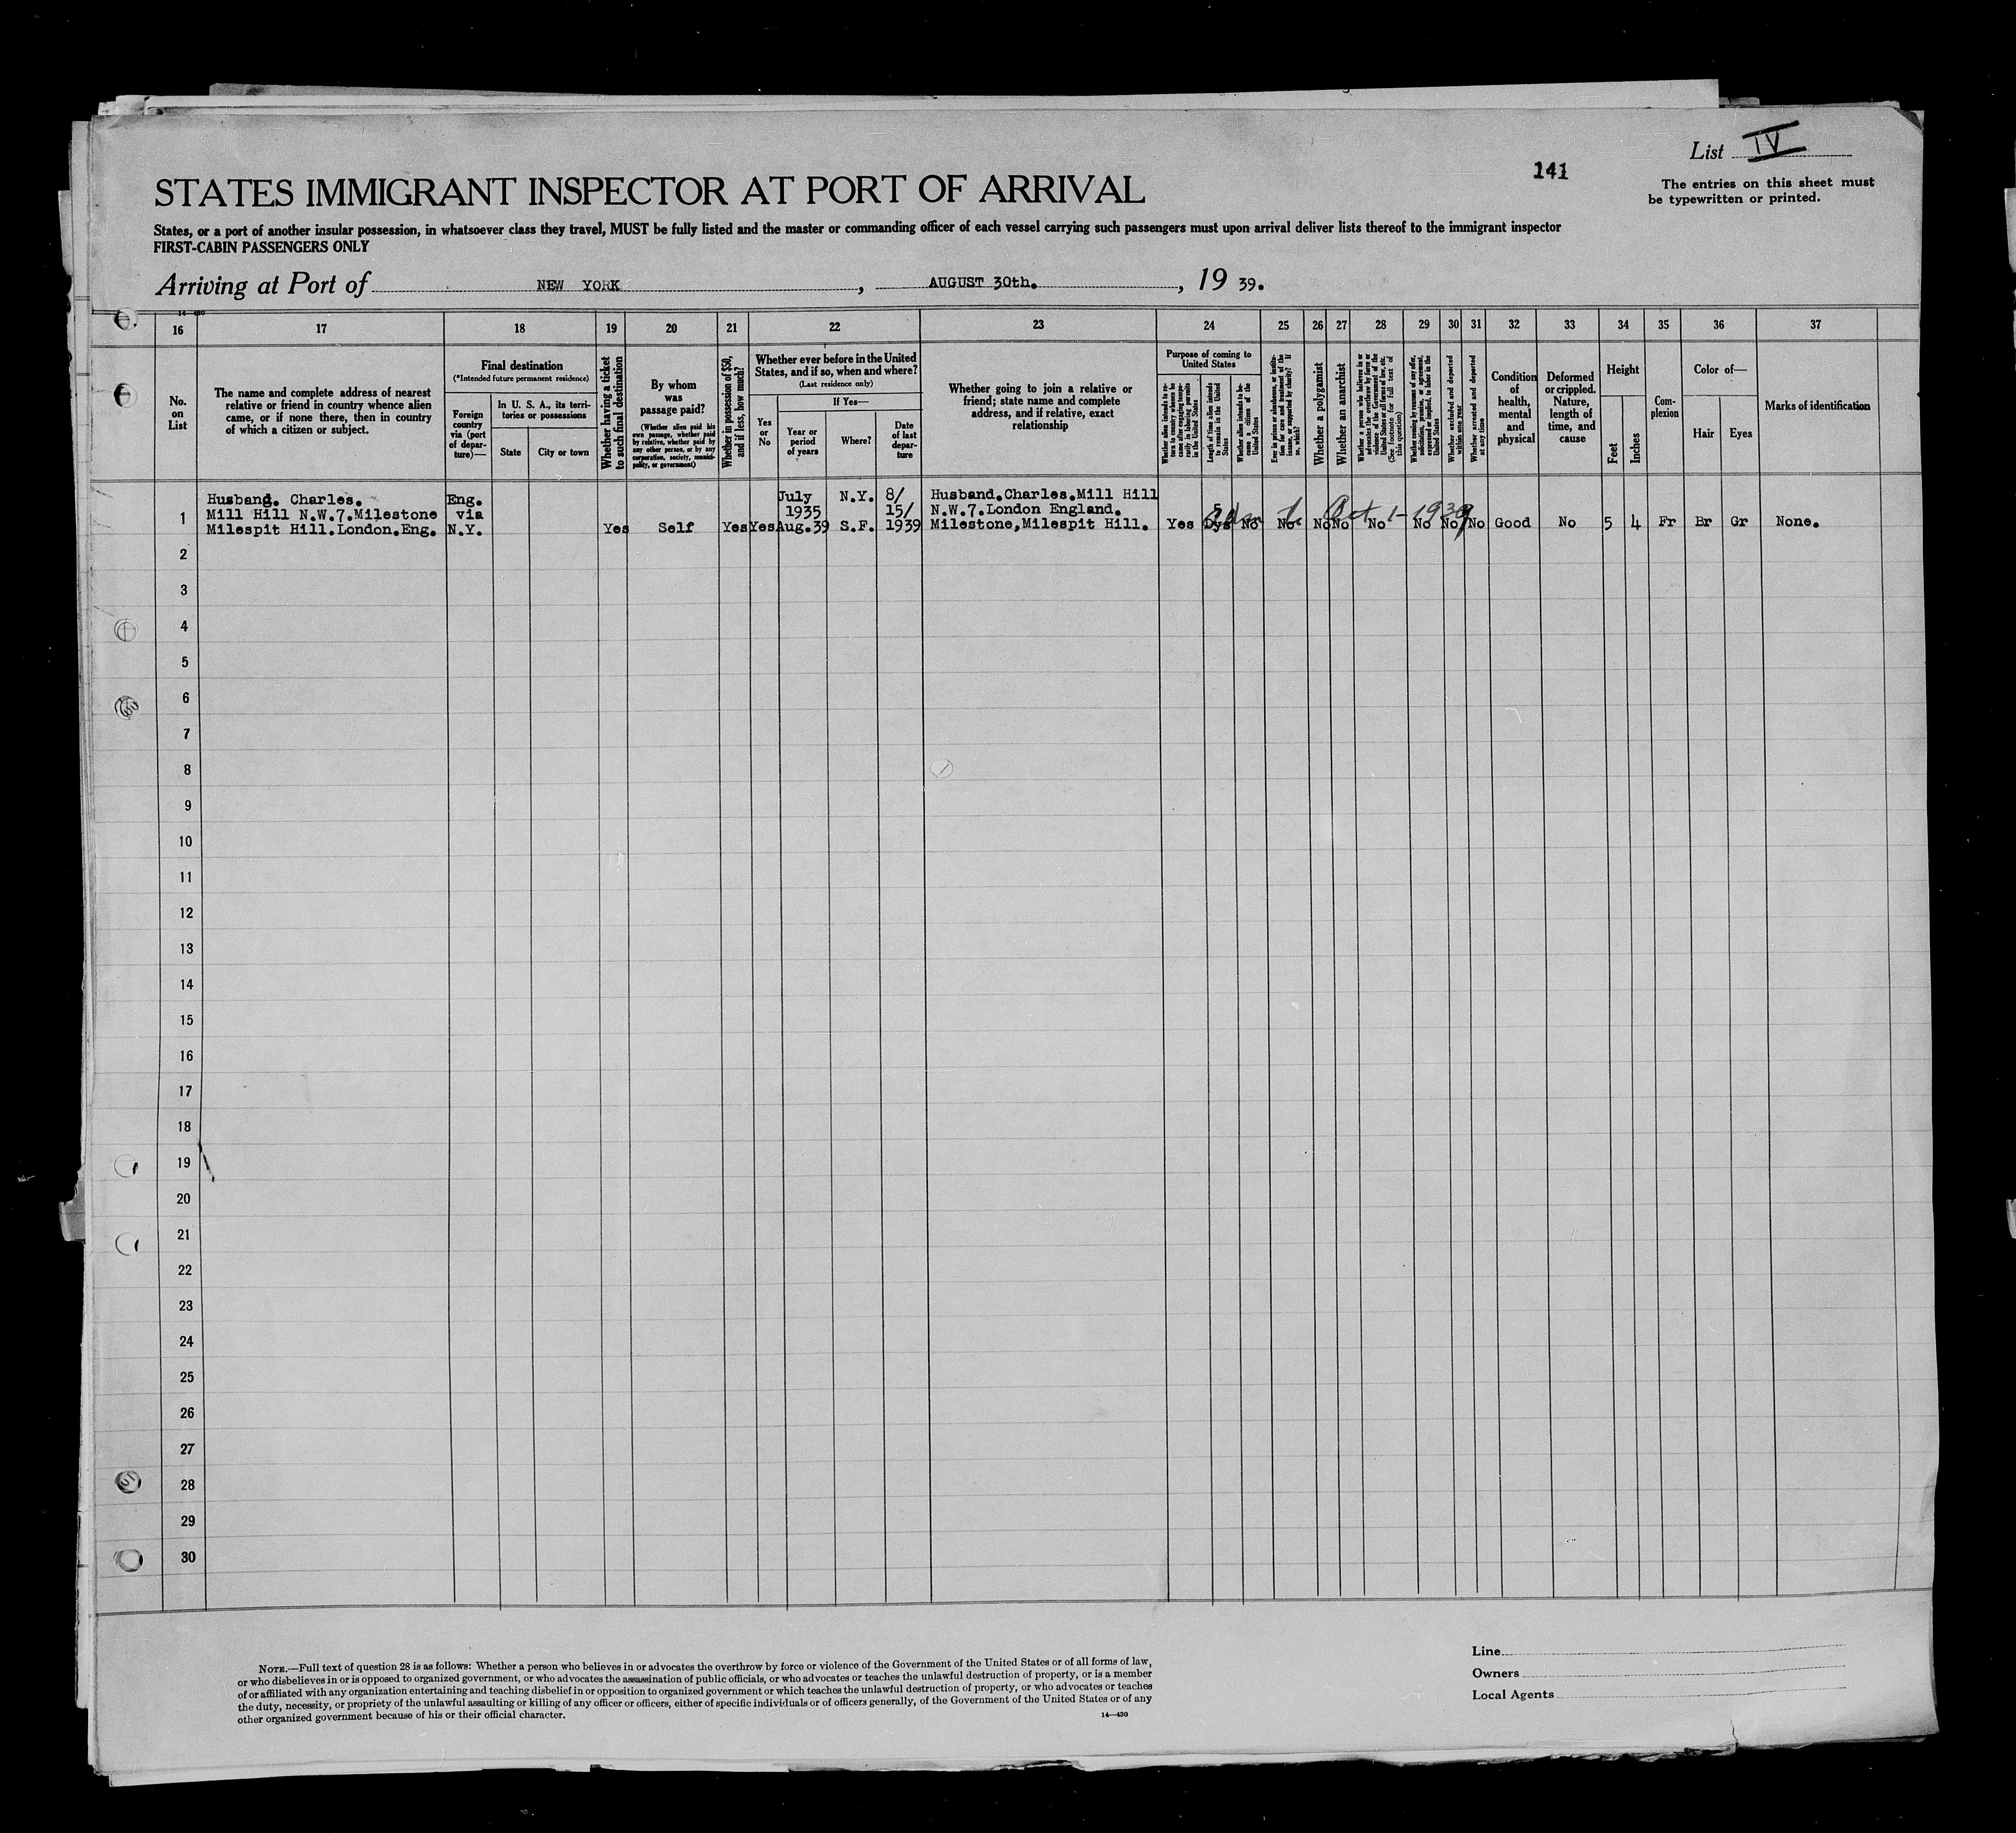 List IV
141
The entries on this sheet must
be typewritten or printed.
STATES IMMIGRANT INSPECTOR AT PORT OF ARRIVAL
States, or a port of another insular possession, in whatsoever class they travel, MUST be fully listed and the master or commanding officer of each vessel carrying such passengers must upon arrival deliver lists thereof to the immigrant inspector
FIRST-CABIN PASSENGERS ONLY
Arriving at Port of NEW YORK, AUGUST 30th., 19 39.
14—430
16 17 18 19 20 21 22 23 24 25 26 27 28 29 30 31 32 33 34 35 36 37
No.
on
List
The name and complete address of nearest
relative or friend in country whence alien
came, or if none there, then in country
of which a citizen or subject.
Final destination
(*Intended future permanent residence)
Foreign
country
via (port
of depar-
ture)—
In U. S. A., its terri-
tories or possessions
State
City or town
Whether having a ticket
to such final destination
By whom
was
passage paid?
(Whether alien paid his
own passage, whether paid
by relative, whether paid by
any other person, or by any
corporation, society, munici-
pality, or government)
Whether in possession of $50,
and if less, how much?
Whether ever before in the United
States, and if so, when and where?
(Last residence only)
Yes
or
No
If Yes—
Year or
period
of years
Where?
Date
of last
depar-
ture
Whether going to join a relative or
friend; state name and complete
address, and if relative, exact
relationship
Purpose of coming to
United States
Whether alien intends to re-
turn to country whence he
came after engaging tempo-
rarily in laboring pursuits
in the United States
Length of time alien intends
to remain in the United
States
Whether alien intends to be-
come a citizen of the
United States
Ever in prison or almshouse, or institu-
tion for care and treatment of the
insane, or supported by charity? If
so, which?
Whether a polygamist
Whether an anarchist
Whether a person who believes in or
advocates the overthrow by force or
violence of the Government of the
United States or all forms of law, etc.
(See footnote for full text of
this question)
Whether coming by reason of any offer,
solicitation, promise, or agreement,
expressed or implied, to labor in the
United States
Whether excluded and deported
within one year
Whether arrested and deported
at any time
Condition
of
health,
mental
and
physical
Deformed
or crippled.
Nature,
length of
time, and
cause
Height
Feet
Inches
Com-
plexion
Color of—
Hair
Eyes
Marks of identification
Husband. Charles. Eng. July N.Y. 8/ Husband.Charles.Mill Hill
1 Mill Hill N.W.7.Milestone via 1935 15/ N.W.7.London England. 5 Oct 1-1939
Milespit Hill.London.Eng. N.Y. Yes Self Yes Yes Aug.39 S.F. 1939 Milestone,Milespit Hill. Yes Dys No No No No No No No No Good No 5 4 Fr Br Gr None.
2
3
4
5
6
7
8
9
10
11
12
13
14
15
16
17
18
19
20
21
22
23
24
25
26
27
28
29
30
NOTE.—Full text of question 28 is as follows: Whether a person who believes in or advocates the overthrow by force or violence of the Government of the United States or of all forms of law,
or who disbelieves in or is opposed to organized government, or who advocates the assassination of public officials, or who advocates or teaches the unlawful destruction of property, or is a member
of or affiliated with any organization entertaining and teaching disbelief in or opposition to organized government or which teaches the unlawful destruction of property, or who advocates or teaches
the duty, necessity, or propriety of the unlawful assaulting or killing of any officer or officers, either of specific individuals or of officers generally, of the Government of the United States or of any
other organized government because of his or their official character.
14—430
Line
Owners
Local Agents